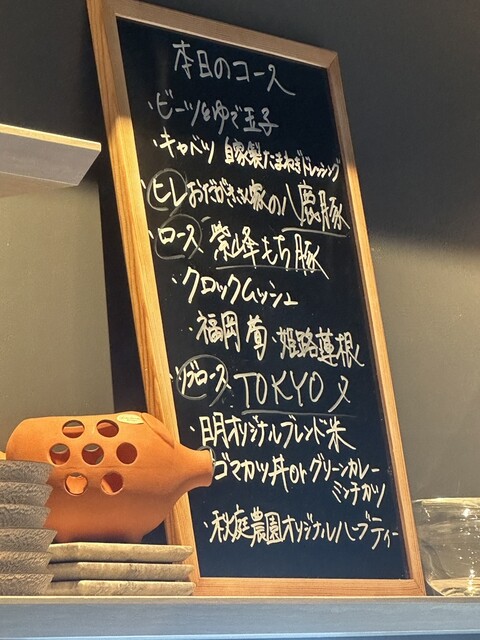 本日のコース
・ビーツ&ゆで玉子
・キャベツ 自家製たまねぎドレッシング
・ヒレ おだがきさん家の八鹿豚
・ロース 紫峰もち豚
・クロックムッシュ
・福岡 筍・姫路蓮根
・リブロース TOKYO X
・日月オリジナルブレンド米
ゴマカツ丼orグリーンカレー
ミンチカツ
・秋庭農園オリジナルハーブティー